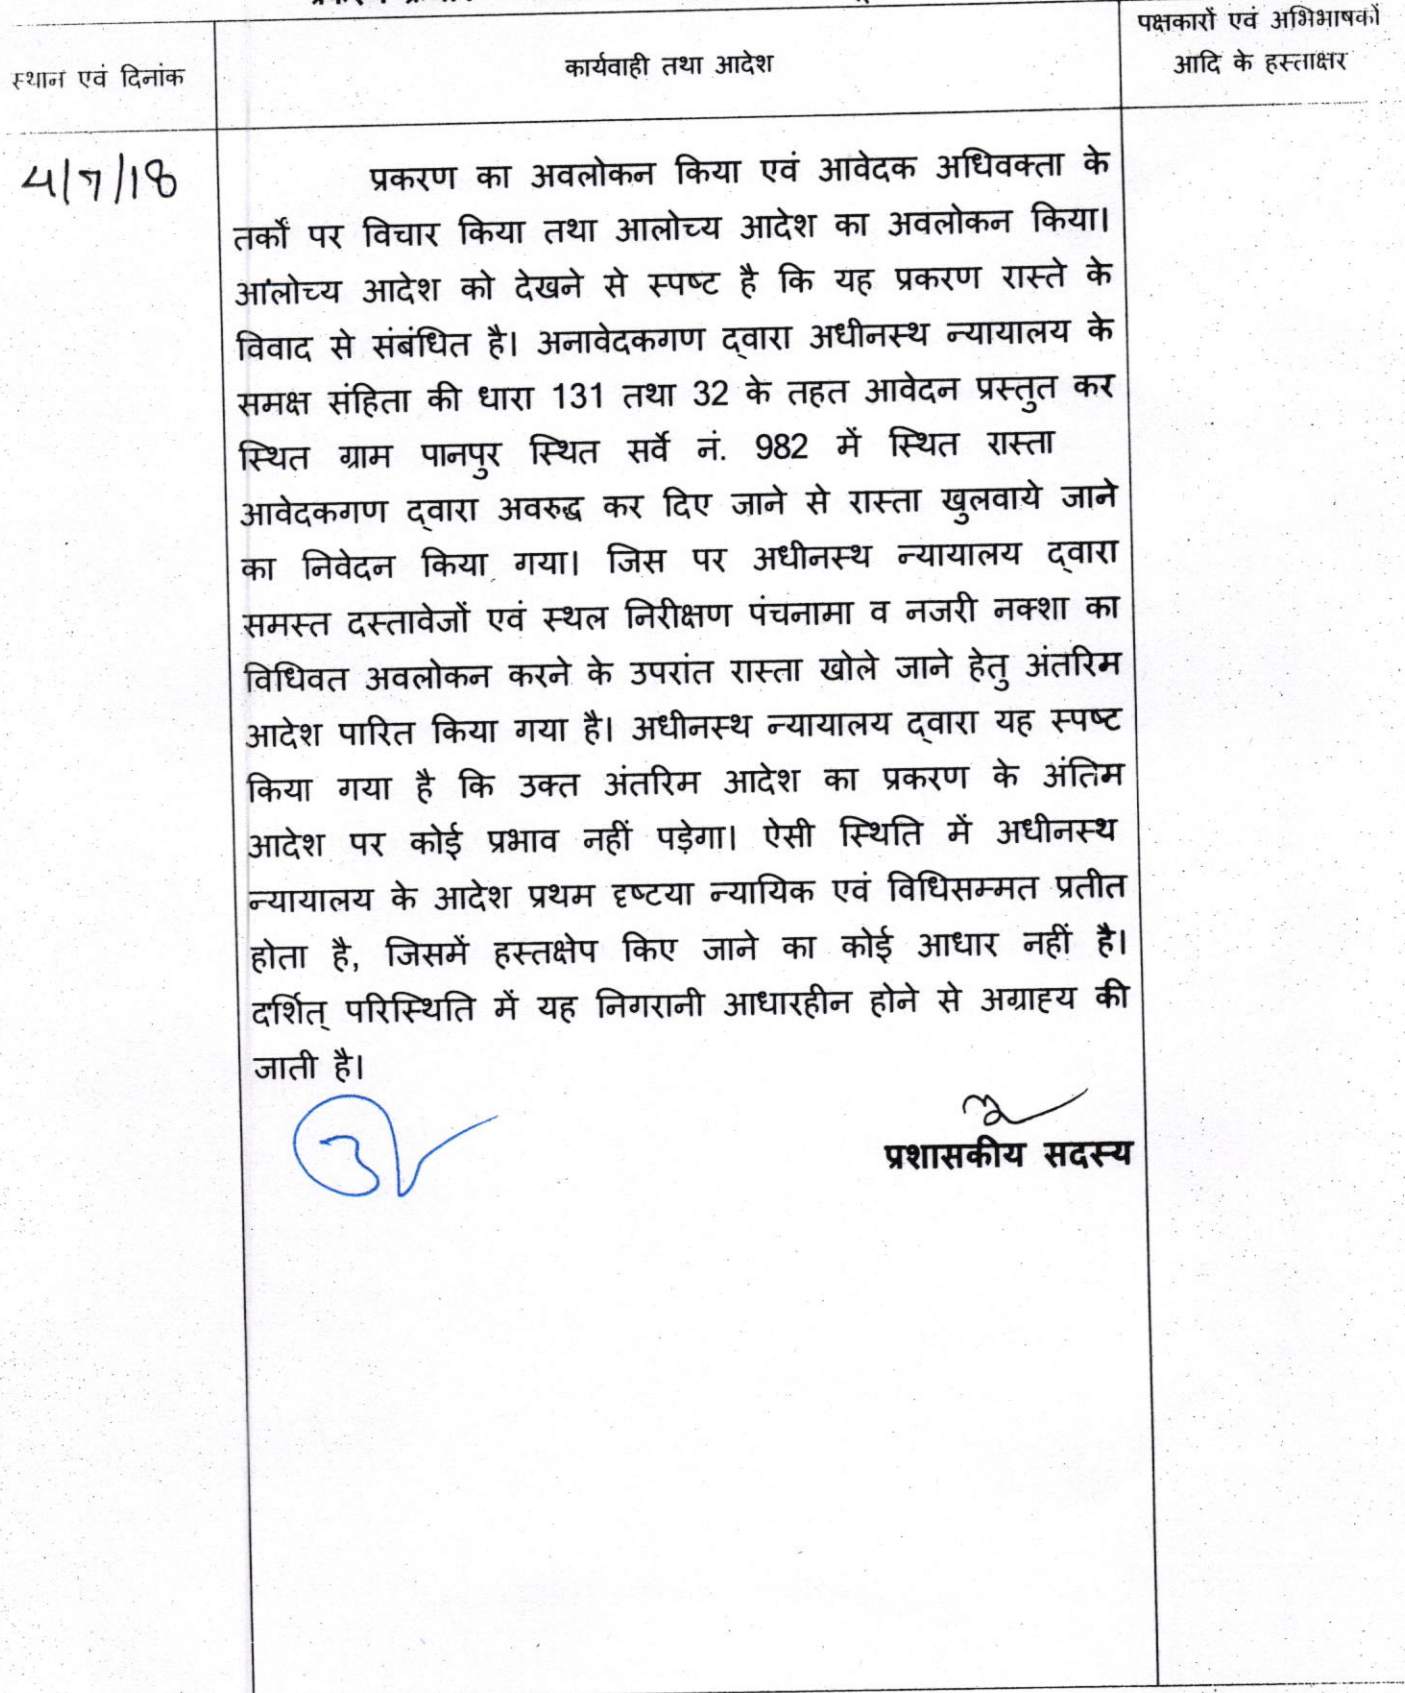 पक्षकारों एवं अभिभाषकों
आदि के हस्ताक्षर
स्थान एवं दिनांक
कार्यवाही तथा आदेश
4/7/18
प्रकरण का अवलोकन किया एवं आवेदक अधिवक्ता के
तर्कों पर विचार किया तथा आलोच्य आदेश का अवलोकन किया।
आलोच्य आदेश को देखने से स्पष्ट है कि यह प्रकरण रास्ते के
विवाद से संबंधित है। अनावेदकगण द्वारा अधीनस्थ न्यायालय के
समक्ष संहिता की धारा 131 तथा 32 के तहत आवेदन प्रस्तुत कर
स्थित ग्राम पानपुर स्थित सर्वे नं. 982 में स्थित रास्ता
आवेदकगण द्वारा अवरुद्ध कर दिए जाने से रास्ता खुलवाये जाने
का निवेदन किया गया। जिस पर अधीनस्थ न्यायालय द्वारा
समस्त दस्तावेजों एवं स्थल निरीक्षण पंचनामा व नजरी नक्शा का
विधिवत अवलोकन करने के उपरांत रास्ता खोले जाने हेतु अंतरिम
आदेश पारित किया गया है। अधीनस्थ न्यायालय द्वारा यह स्पष्ट
किया गया है कि उक्त अंतरिम आदेश का प्रकरण के अंतिम
आदेश पर कोई प्रभाव नहीं पड़ेगा। ऐसी स्थिति में अधीनस्थ
न्यायालय के आदेश प्रथम दृष्टया न्यायिक एवं विधिसम्मत प्रतीत
होता है, जिसमें हस्तक्षेप किए जाने का कोई आधार नहीं है।
दर्शित् परिस्थिति में यह निगरानी आधारहीन होने से अग्राह्य की
जाती है।
प्रशासकीय सदस्य